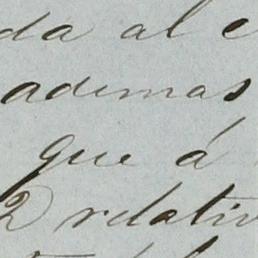 da al e
ademas
que á
2 relativ